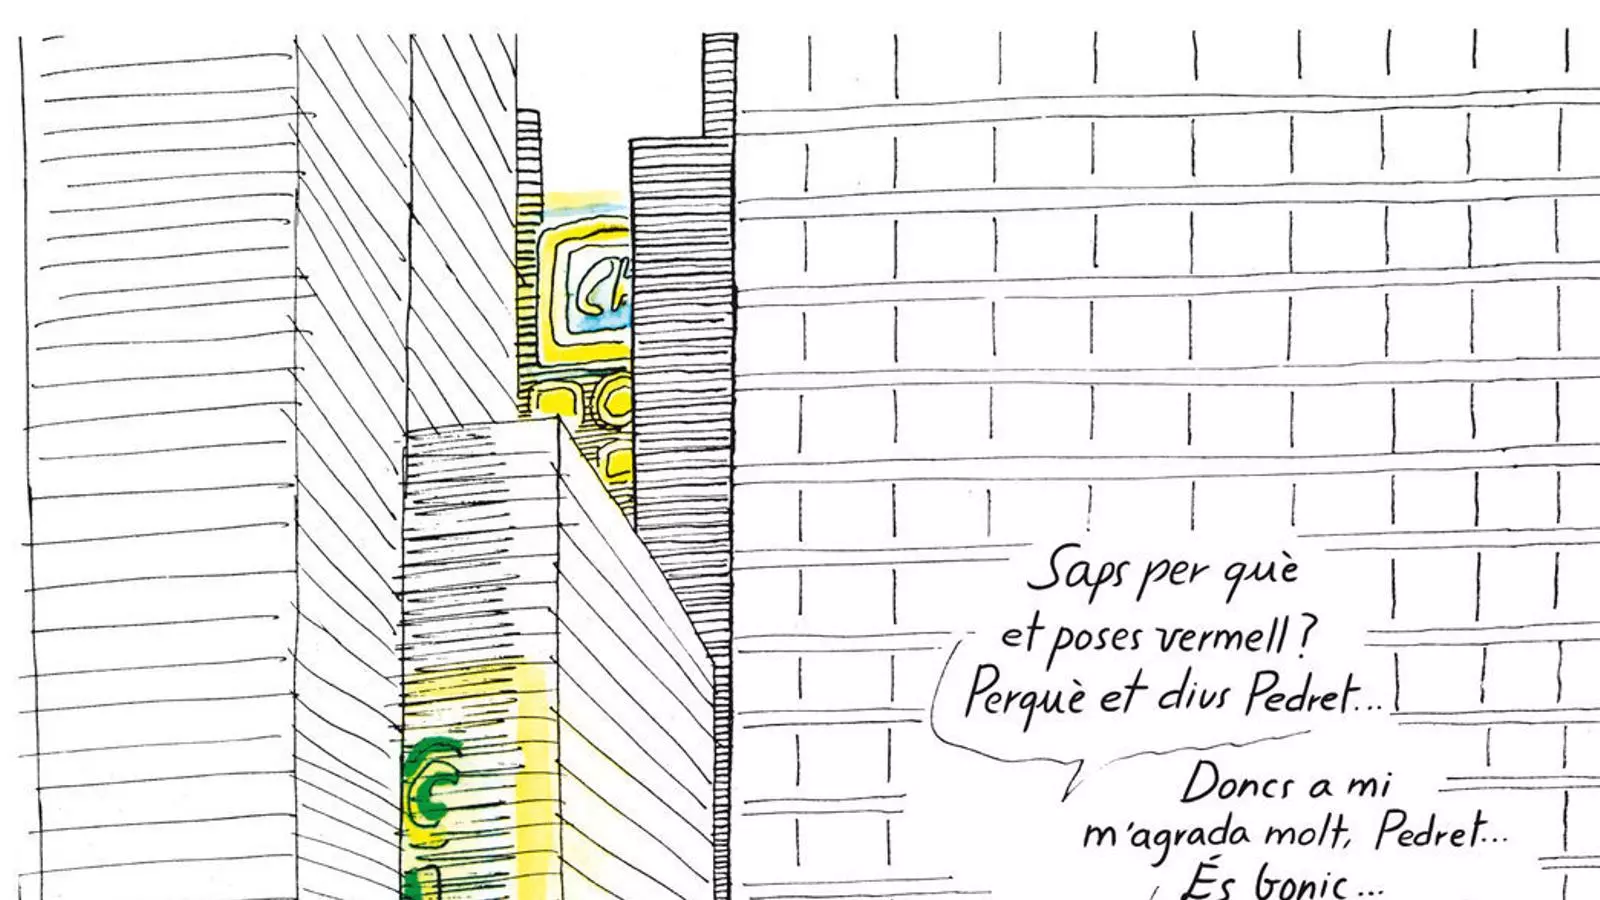 Saps per què
et poses vermell?
Perquè et dius Pedret...
Doncs a mi
m'agrada molt, Pedret...
És bonic...